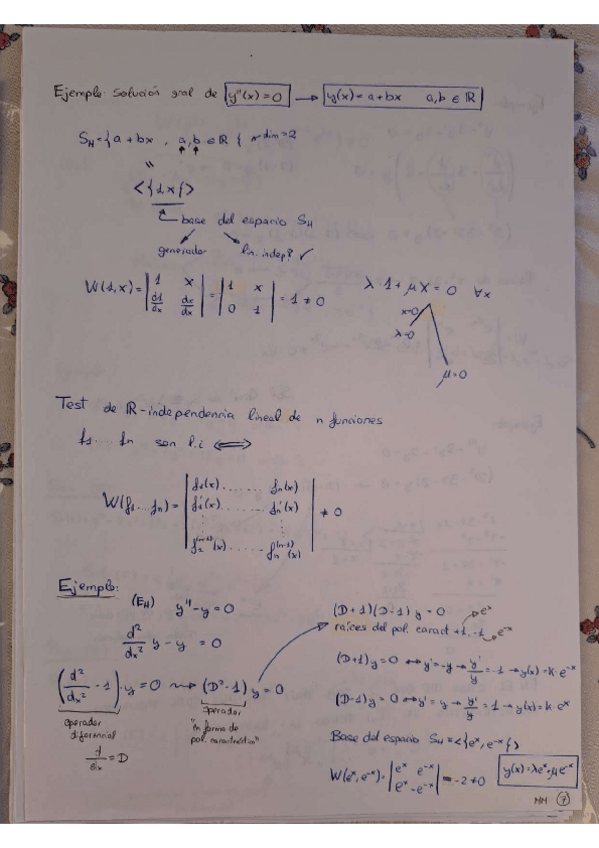 Ejemplo: Solución gral de y''(x)=0 → y(x)=a+bx a,b ∈ ℝ
S_H={a+bx, a,b∈ℝ} dim=2
"
<{1 x}>
base del espacio S_H
generador lin. indep? ✓
W(1,x)= |1 x; d1/dx dx/dx| = |1 x; 0 1| = 1 ≠ 0 λ·1+μx=0 ∀x
x=0
λ=0
μ=0
Test de ℝ-independencia lineal de n funciones
f1....fn son l.i ⟺
W(f1...fn)= |f1(x)........fn(x); f1'(x)........fn'(x); f1^(n-1)(x)......fn^(n-1)(x)| ≠ 0
Ejemplo:
(E_H) y''-y=0
d²/dx² y-y = 0
(d²/dx² -1)·y=0 ⇝ (D²-1)y=0
operador diferencial
d/dx = D
operador
"en forma de pol. característico"
(D+1)(D-1) y = 0
raíces del pol. caract +1,-1 e^x e^-x
(D+1)y=0 ↔ y'=-y → y'/y=-1 → y(x)=k·e^-x
(D-1)y=0 ↔ y'=y → y'/y=1 → y(x)=k·e^x
Base del espacio S_H=<{e^x,e^-x}>
W(e^x,e^-x)= |e^x e^-x; e^x -e^-x| = -2≠0 y(x)=λe^x+μe^-x
7